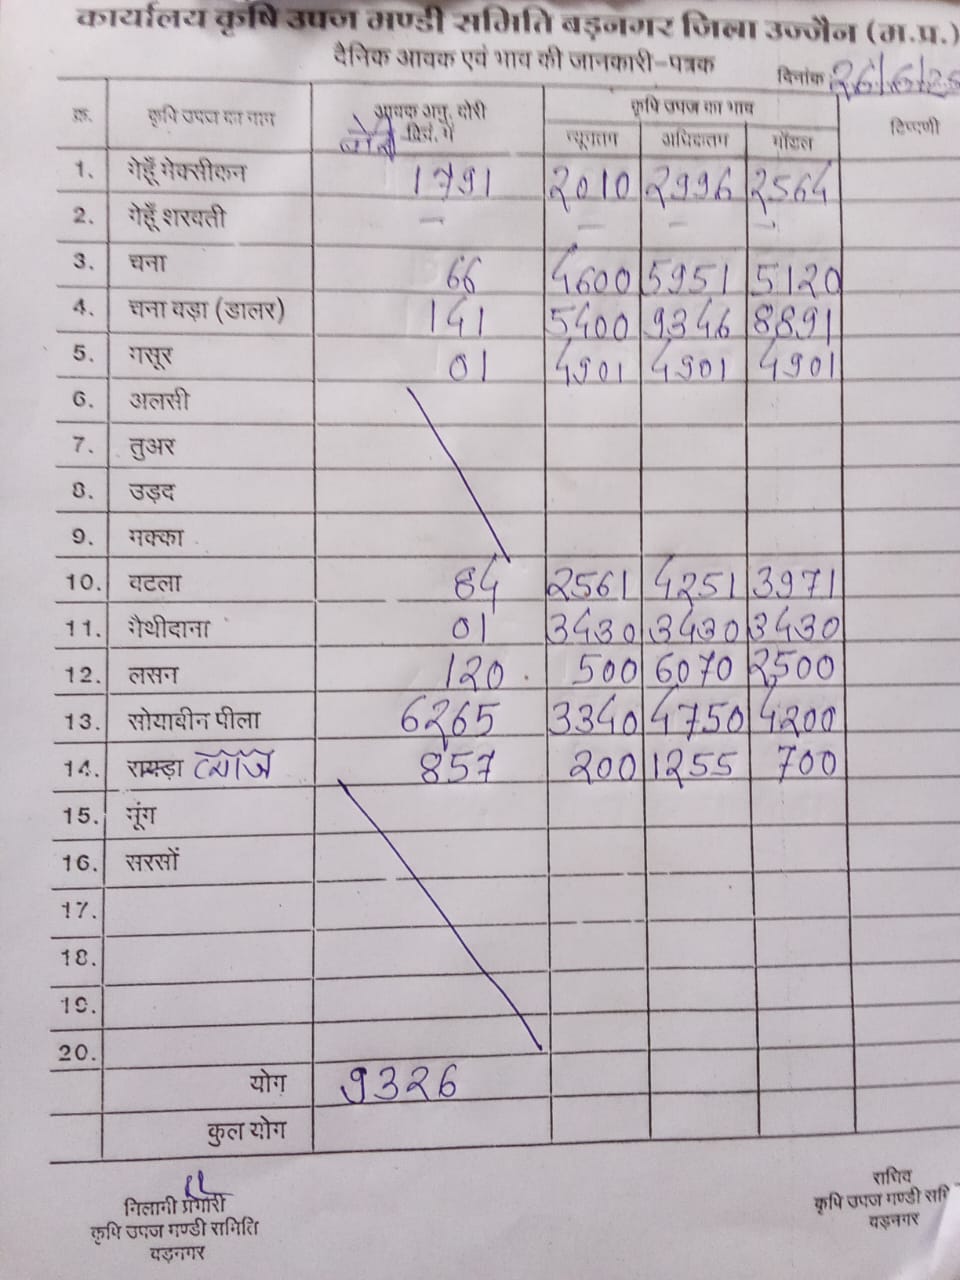 कार्यालय कृषि उपज मण्डी समिति बड़नगर जिला उज्जैन (म.प्र.)
दैनिक आवक एवं भाव की जानकारी-पत्रक
दिनांक 26/6/25
क्र. कृषि उपज का नाम आवक अनु. बोरी कृषि उपज का भाव टिप्पणी
बोरी क्विं. में न्यूनतम अधिकतम मॉडल
1. गेहूँ मेक्सीकन 1791 2010 2996 2564
2. गेहूँ शरवती – – – –
3. चना 66 4600 5951 5120
4. चना बड़ा (डालर) 141 5400 9346 8891
5. मसूर 01 4901 4901 4901
6. अलसी
7. तुअर
8. उड़द
9. मक्का
10. बटला 84 2561 4251 3971
11. मैथीदाना 01 3430 3430 3430
12. लसन 120 500 6070 2500
13. सोयाबीन पीला 6265 3340 4750 4200
14. 857 200 1255 700
15. मूंग
16. सरसों
17.
18.
19.
20.
योग 9326
कुल योग
निलामी प्रभारी
कृषि उपज मण्डी समिति
बड़नगर
सचिव
कृषि उपज मण्डी समि
बड़नगर